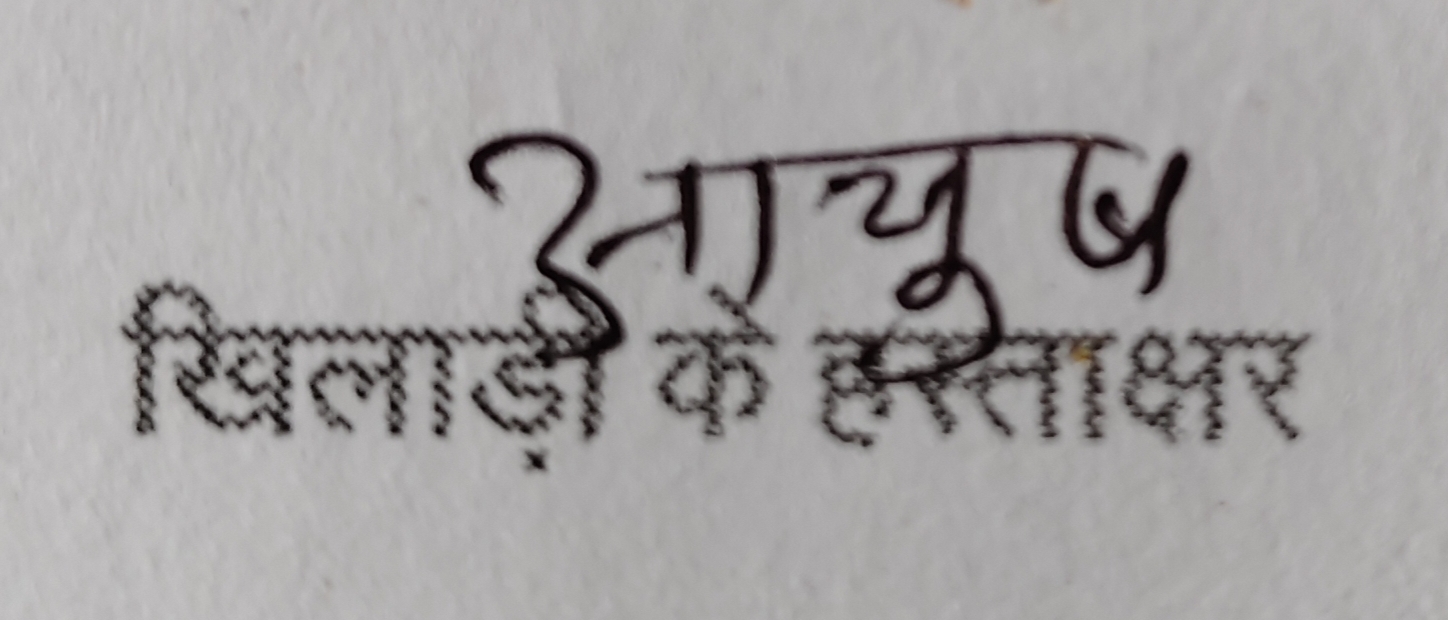 आयुष
खिलाड़ी के हस्ताक्षर